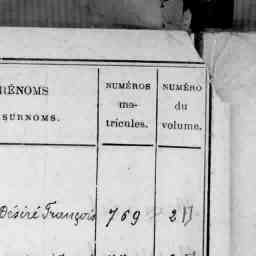 RÉNOMS
SURNOMS.
NUMÉROS
ma-
tricules.
NUMÉRO
du
volume.
Désiré François 769 2